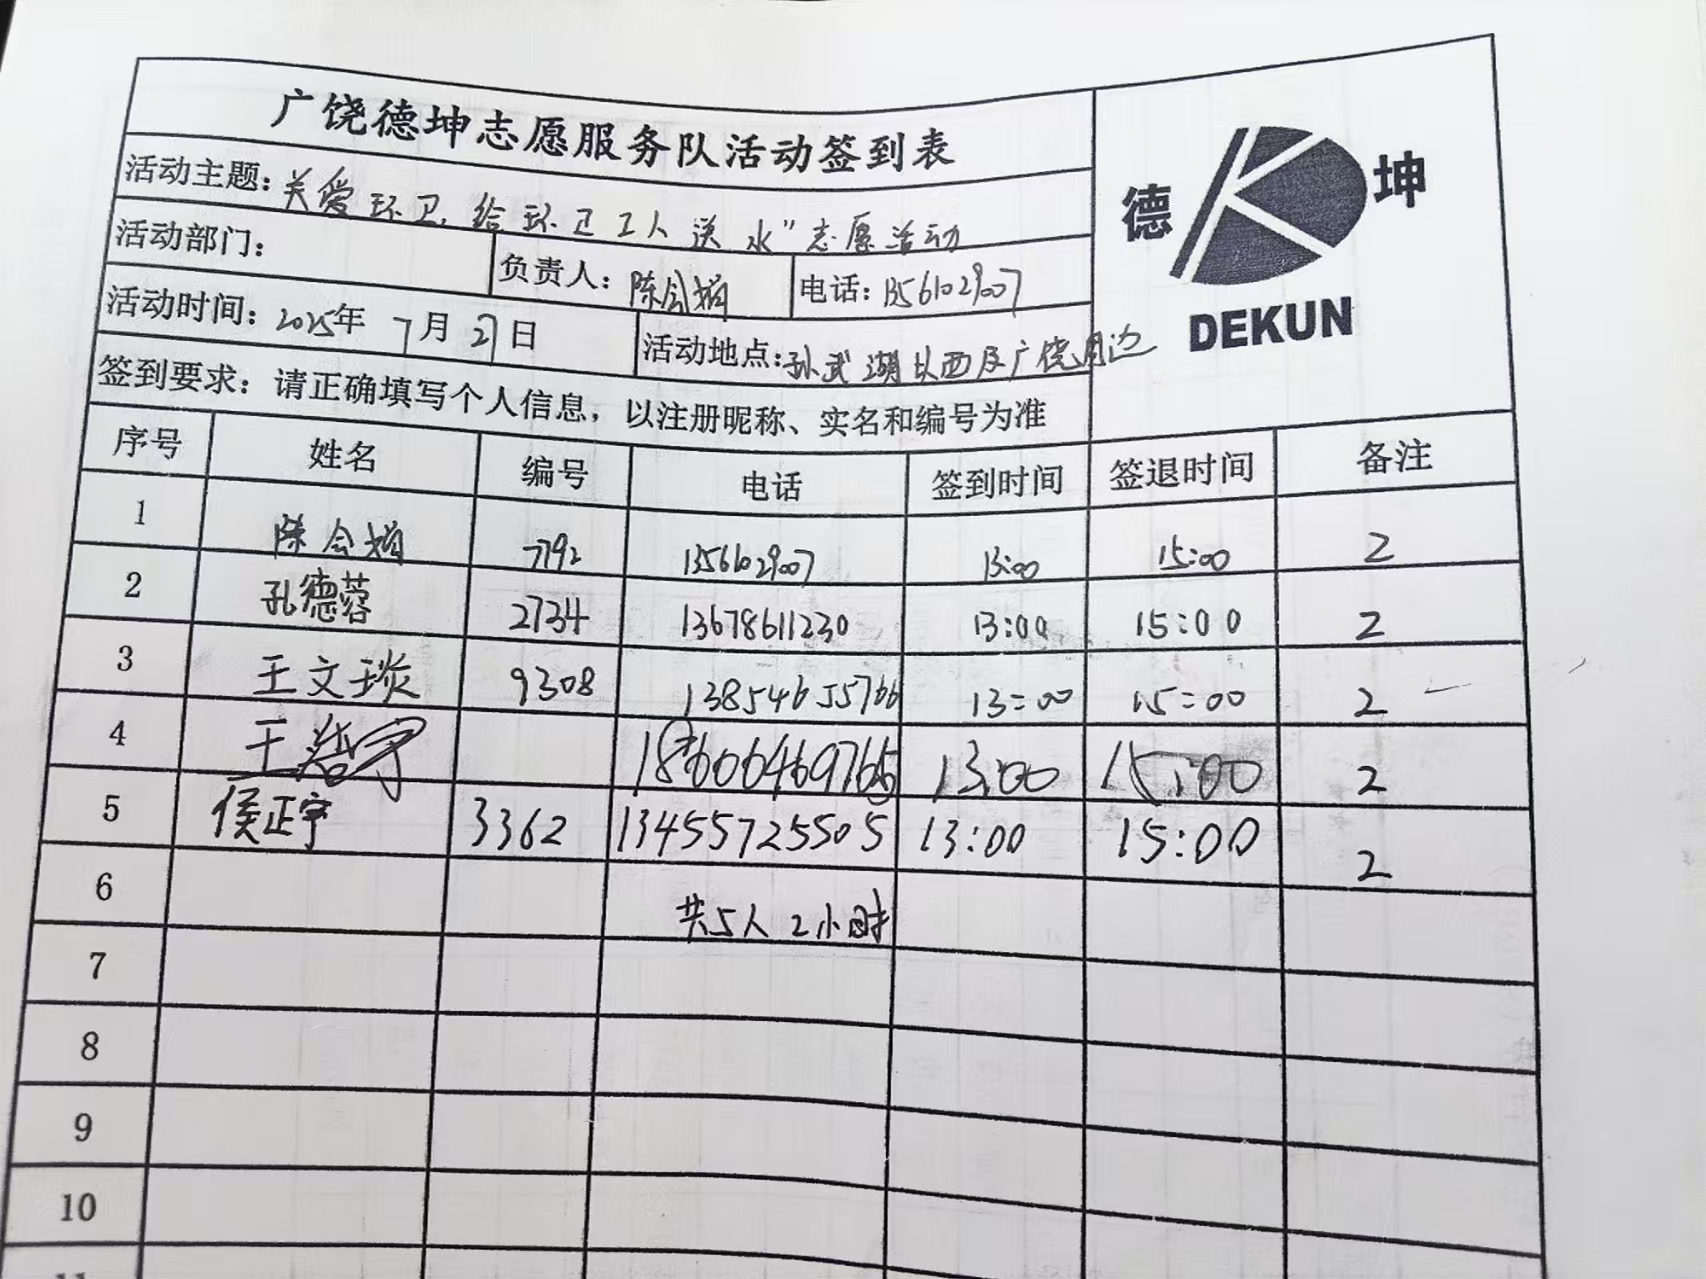 广饶德坤志愿服务队活动签到表
德 坤
DEKUN
活动主题：关爱环卫，给环卫工人送水"志愿活动
活动部门：
负责人：陈会娟
电话：13561029007
活动时间：2025年 7月 27日
活动地点：孙武湖以西及广饶周边
签到要求：请正确填写个人信息，以注册昵称、实名和编号为准
序号 姓名 编号 电话 签到时间 签退时间 备注
1 陈会娟 7792 13561029007 13:00 15:00 2
2 孔德蓉 2734 13678611230 13:00 15:00 2
3 王文琰 9308 13854655766 13:00 15:00 2
4 王浩宇 13:00 15:00 2
5 侯正宇 3362 13455725505 13:00 15:00 2
6 共5人 2小时
7
8
9
10